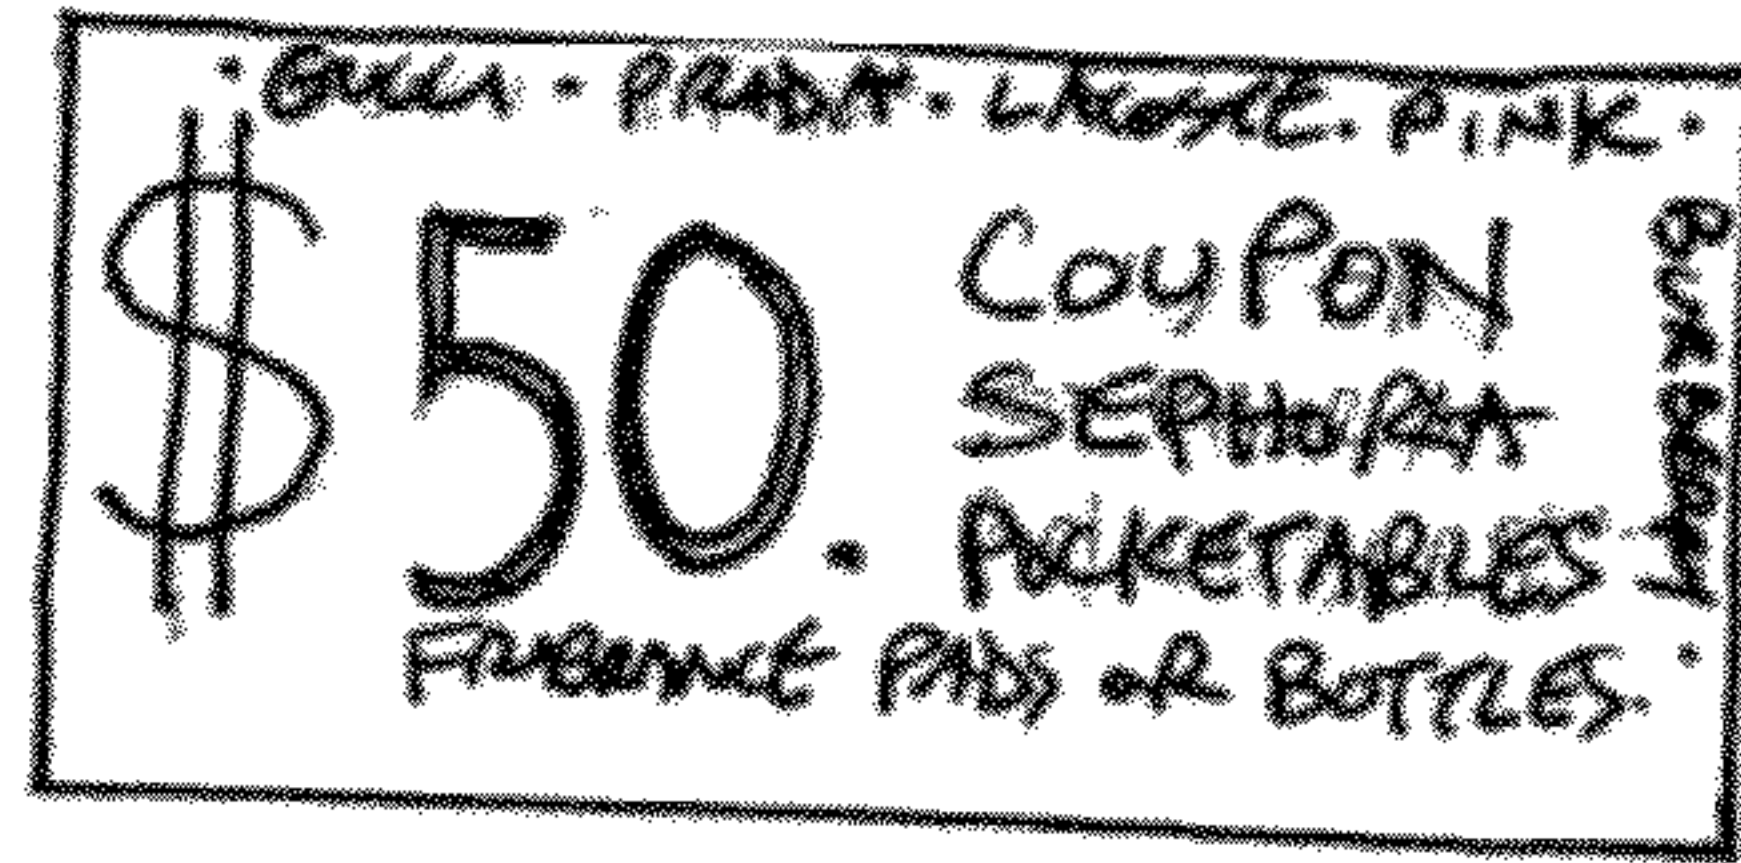 · GUCCI · PRADA · LACOSTE · PINK ·
$50.
COUPON
SEPHORA
POCKETABLES
FRAGRANCE PADS OR BOTTLES.
BURBERRY ·